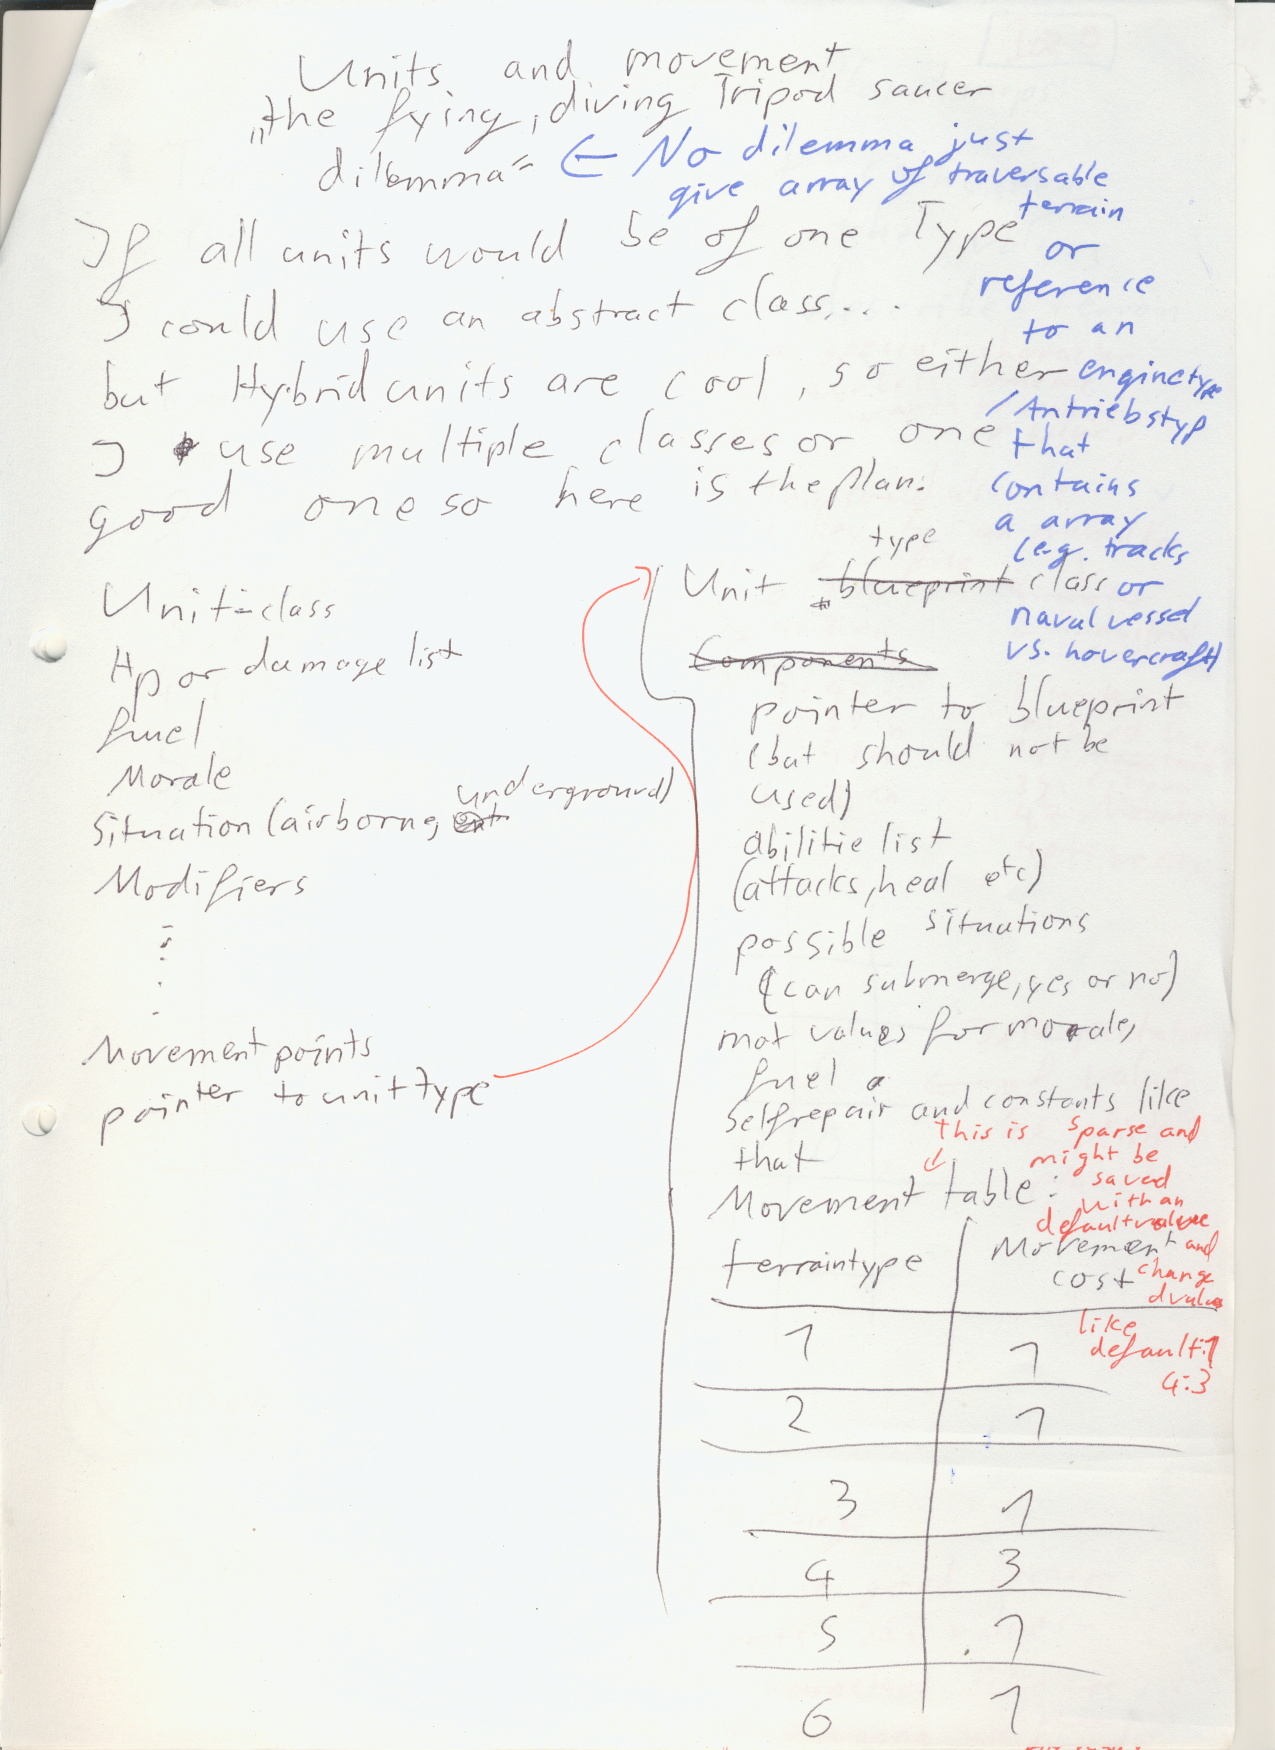 Units and movement
„the fying, diving Tripod saucer
dilemma“
← No dilemma just
give array of traversable
terrain
or
reference
to an
enginetype
/Antriebstyp
that
contains
a array
(e.g. tracks
or
naval vessel
vs. hovercraft)
If all units would be of one Type
I could use an abstract class...
but Hybrid units are cool, so either
I use multiple classes or one
good one so here is the plan:
Unit-class
Hp or damage list
fuel
Morale
Situation (airborne, underground)
Modifiers
Movement points
pointer to unit type
type
Unit blueprint class
Components
pointer to blueprint
(but should not be
used)
abilitie list
(attacks, heal etc)
possible situations
(can submerge, yes or no)
max values for morale,
fuel
Selfrepair and constants like
that
Movement table:
this is sparse and
might be
saved
with an
defaultvalue
and
change
dvalues
like
default:1
4:3
terraintype | Movement
cost
1 1
2 1
3 1
4 3
5 1
6 1